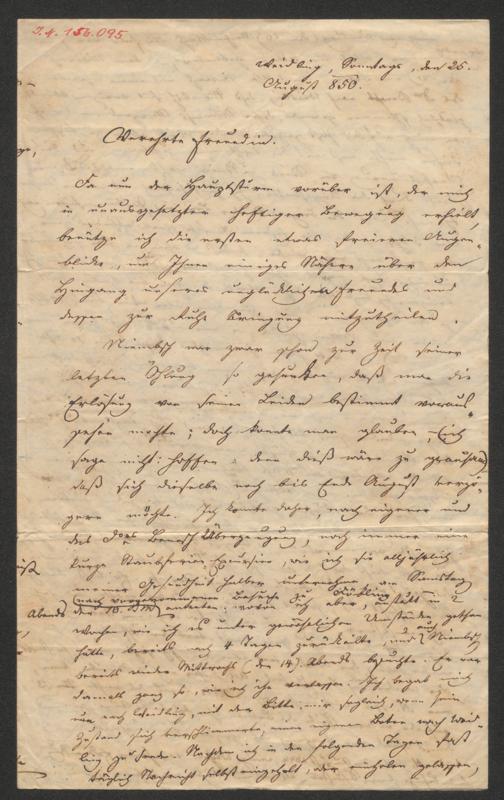 I.N. 156.095
Weidling, Sonntags, den 25.
August 850.
Verehrte Freundin.
Da nun der Hauptsturm vorüber ist, der mich
in unausgesetzter heftiger Bewegung erhielt,
benütze ich die ersten etwas freieren Augen-
blicke, um Ihnen einiges Nähere über den
Hingang unseres unglücklichen Freundes und
dessen zur Ruhe Bringung mitzutheilen.
Niembsch war zwar schon zur Zeit seiner
letzten so gesunken, daß man die
Erlösung von seinen Leiden bestimmt voraus-
sehen mochte; doch konnte man glauben, (ich
sage nicht: hoffen, denn dieß wäre zu grausam)
daß sich dieselbe noch bis Ende August verzö-
gern möchte. Ich konnte daher, nach eigener und
des Überzeugung, noch immer eine
kurze Excursion, wie ich sie alljährlich
meiner Gesundheit halber unternehme am Samstag
(nach vorgenommenem Besuche in Döbling)
Abends den 10. antreten; wovon ich aber, anstatt in 2
Wochen, wie ich es unter gewöhnlichen Umständen gethan
hätte, bereits nach 4 Tagen zurückkehrte, und Niembsch
bereits wieder Mittwochs (den 14.) Abends besuchte. Er war
damals ganz so, wie ich ihn verlassen. Ich begab mich
nun nach Weidling, mit der Bitte, mir sogleich, wenn sein
Zustand sich verschlimmerte, einen eigenen Boten nach Weid-
ling zu senden. Nachdem ich in den folgenden Tagen fast
täglich Nachricht selbst eingeholt, oder einholen gelassen,